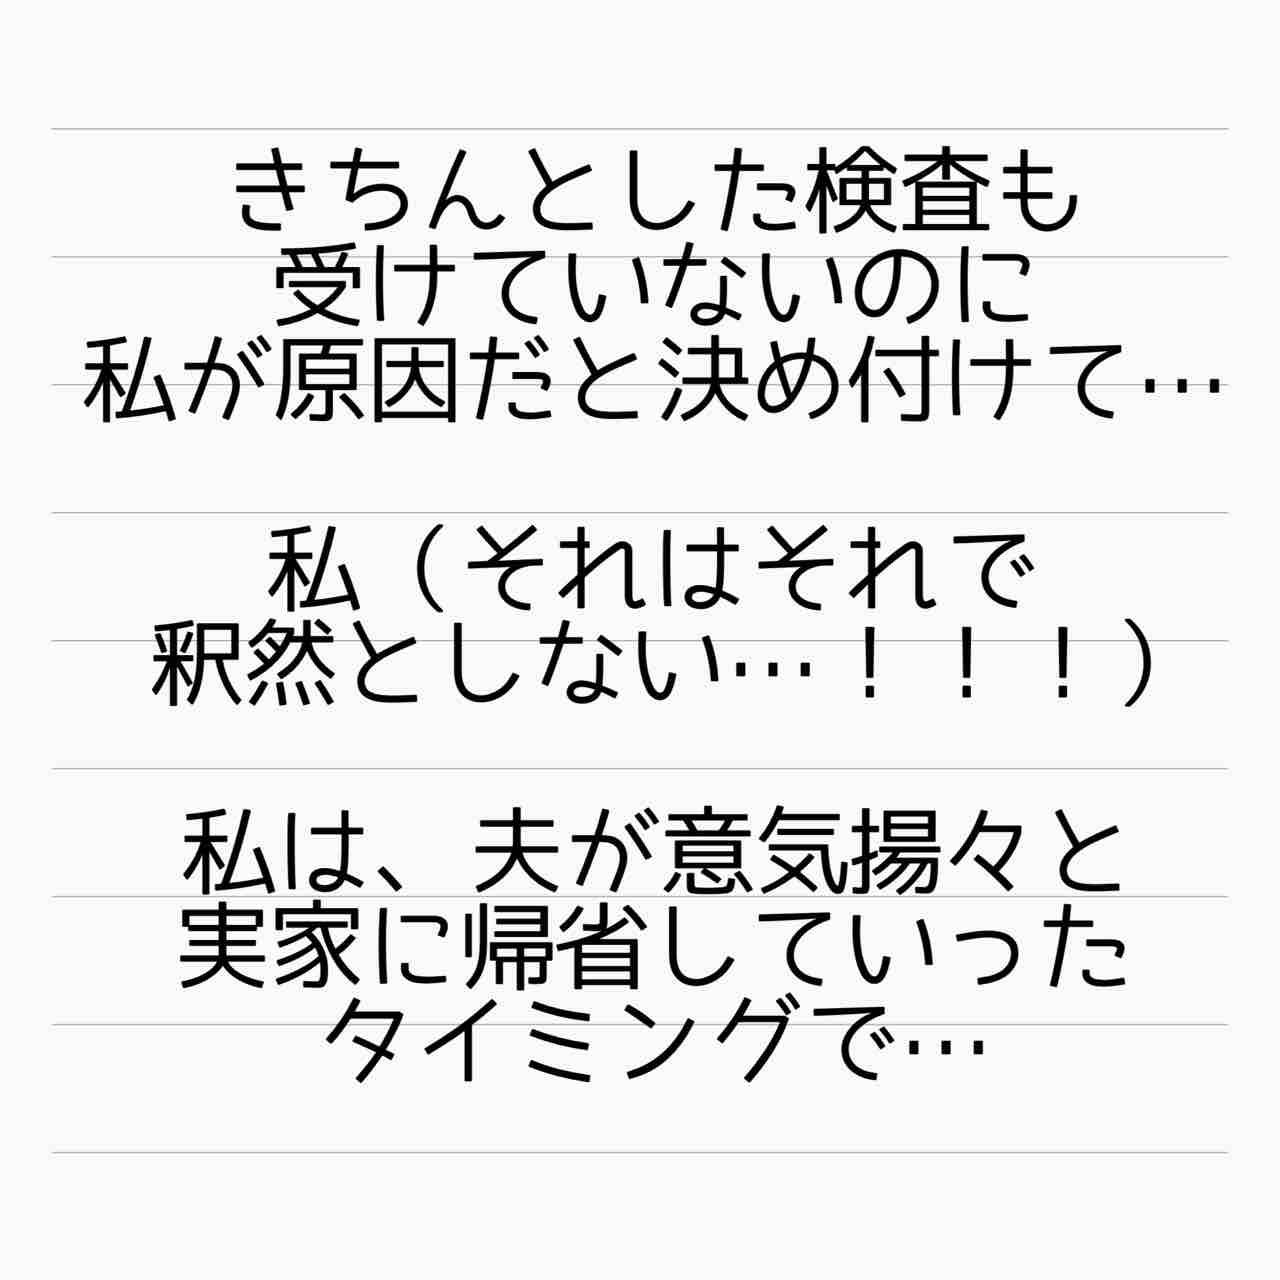 きちんとした検査も
受けていないのに
私が原因だと決め付けて…
私（それはそれで
釈然としない…！！！）
私は、夫が意気揚々と
実家に帰省していった
タイミングで…